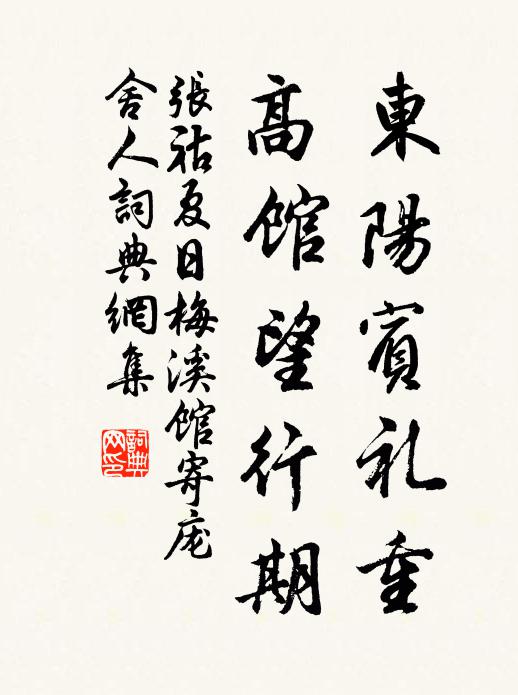 東陽賓礼重
高馆望行期
張祜夏日梅溪馆寄庞
舍人詞典網集
詞典网印